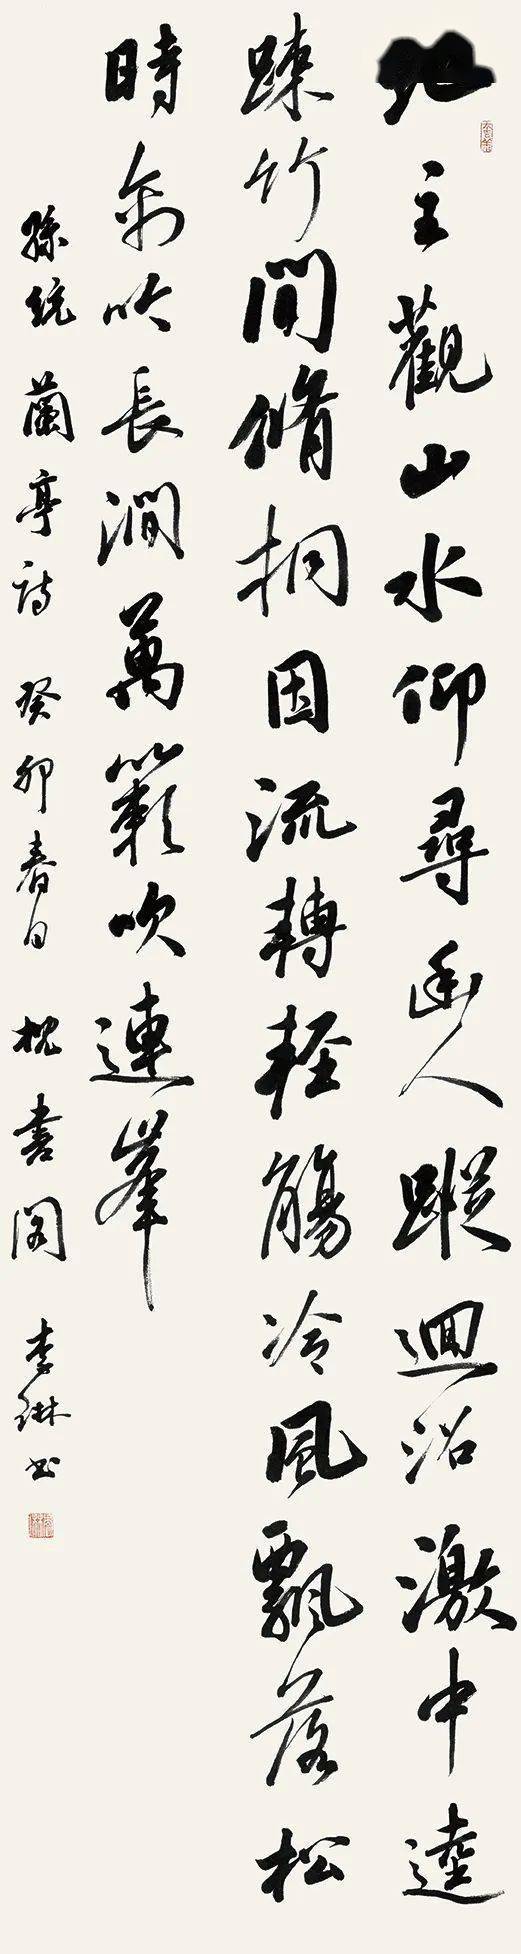 主觀山水仰尋幽人蹤迴沼激中逵
踈竹間脩桐因流轉輕觴冷風飄落松
時禽吟長澗萬籟吹連峯
孫統 蘭亭詩 癸卯春日 枕書閣 李琳书